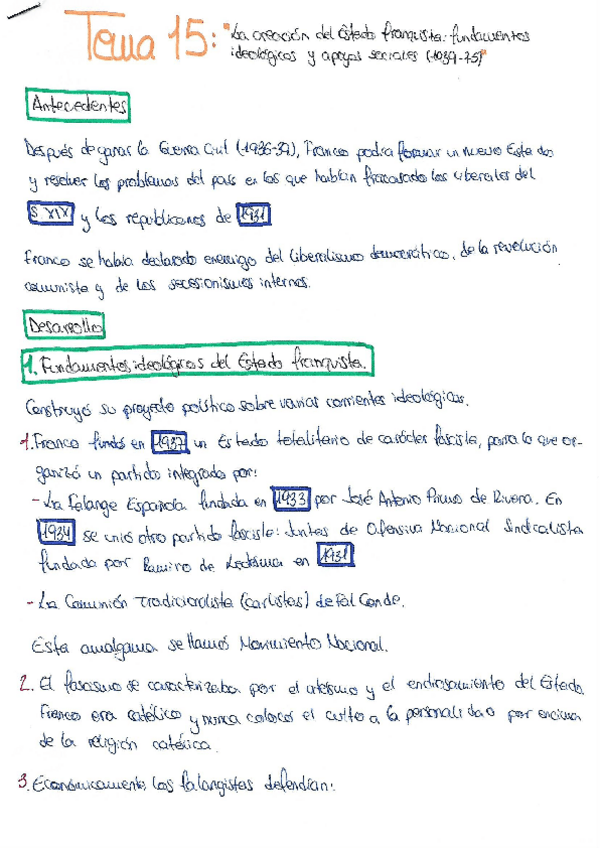 Tema 15: "La creación del Estado franquista: fundamentos
ideológicos y apoyos sociales (1939-75)"
Antecedentes
Después de ganar la Guerra Civil (1936-39), Franco podía formar un nuevo Estado
y resolver los problemas del país en los que habían fracasado los liberales del
S XIX y los republicanos de 1931
Franco se había declarado enemigo del liberalismo democrático, de la revolución
comunista y de los secesionismos internos.
Desarollo
1. Fundamentos ideológicos del Estado franquista.
Construyó su proyecto político sobre varias corrientes ideológicas.
1. Franco fundó en 1937 un Estado totalitario de carácter fascista, para lo que or-
ganizó un partido integrado por:
- La Falange Española fundada en 1933 por José Antonio Primo de Rivera. En
1934 se unió otro partido fascista: Juntas de Ofensiva Nacional Sindicalista
fundada por Ramiro de Ledesma en 1931
- La Comunión Tradicionalista (carlistas) de Fal Conde.
Esta amalgama se llamó Movimiento Nacional.
2. El fascismo se caracterizaba por el ateísmo y el endiosamiento del Estado
Franco era católico y nunca colocó el culto a la personalidad por encima
de la religión católica.
3. Económicamente los falangistas defendían: